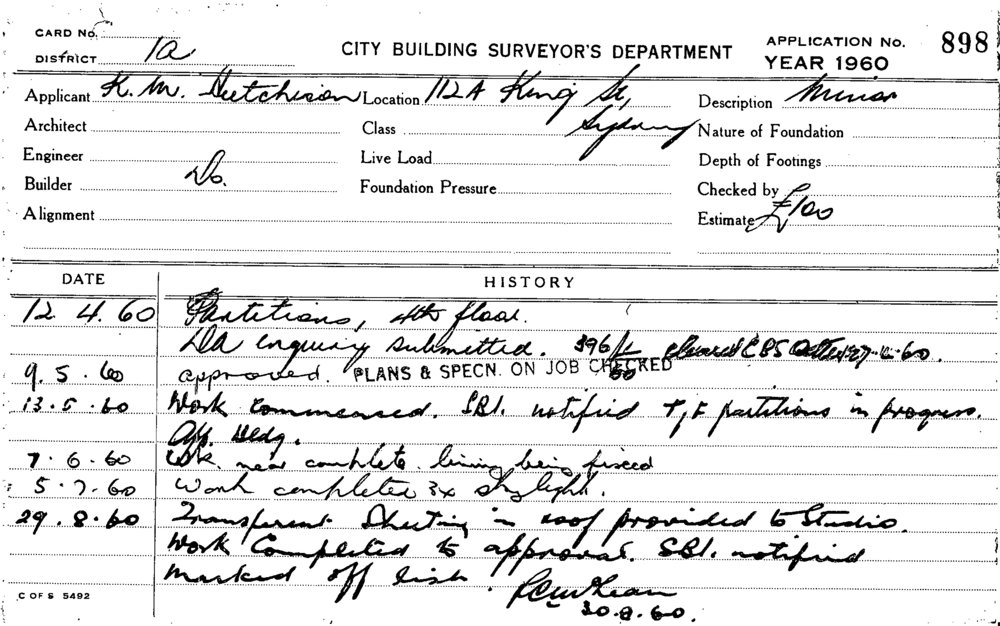 CARD No.
DISTRICT 1a
CITY BUILDING SURVEYOR'S DEPARTMENT
APPLICATION No. 898
YEAR 1960
Applicant K. M. Hutchison Location 112A King St, Sydney Description Minor
Architect Class Nature of Foundation
Engineer Live Load Depth of Footings
Builder Do. Foundation Pressure Checked by
Alignment Estimate £100
DATE HISTORY
12 4. 60 Partitions, 4th floor.
DA enquiry submitted. 396/ cleared CBS 60.
9. 5. 60 approved. PLANS & SPECN. ON JOB CHECKED
13. 5. 60 Work commenced. SBI. notified T, F partitions in progress.
Off. Bldg.
7. 6. 60 Wk. near complete. lining being fixed
5. 7. 60 Work completed 3x skylight.
29. 8. 60 Transparent Sheeting in roof provided to Studio.
Work Completed to approval. SBI. notified
Marked off list
30. 8. 60.
C OF S 5492